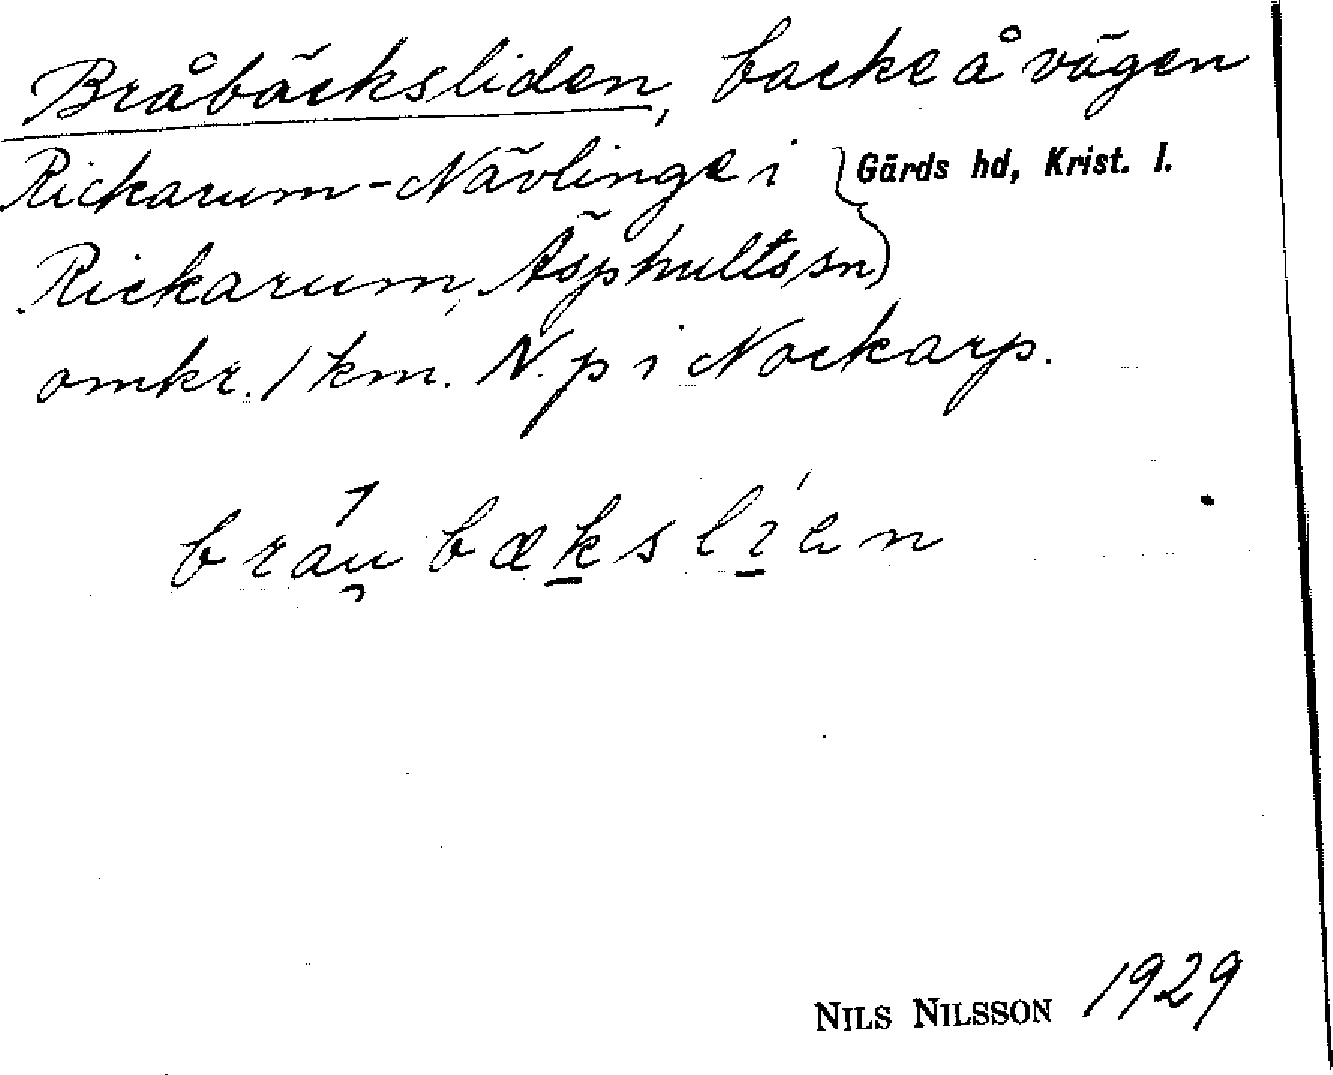 Bråbäcksliden, backe å vägen
Rickarum-Nävlinge i
Gärds hd, Krist. l.
Rickarum, Äsphults sn
omkr. 1 km. N. p i Nockarp.
bråu bæksli en
NILS NILSSON 1929